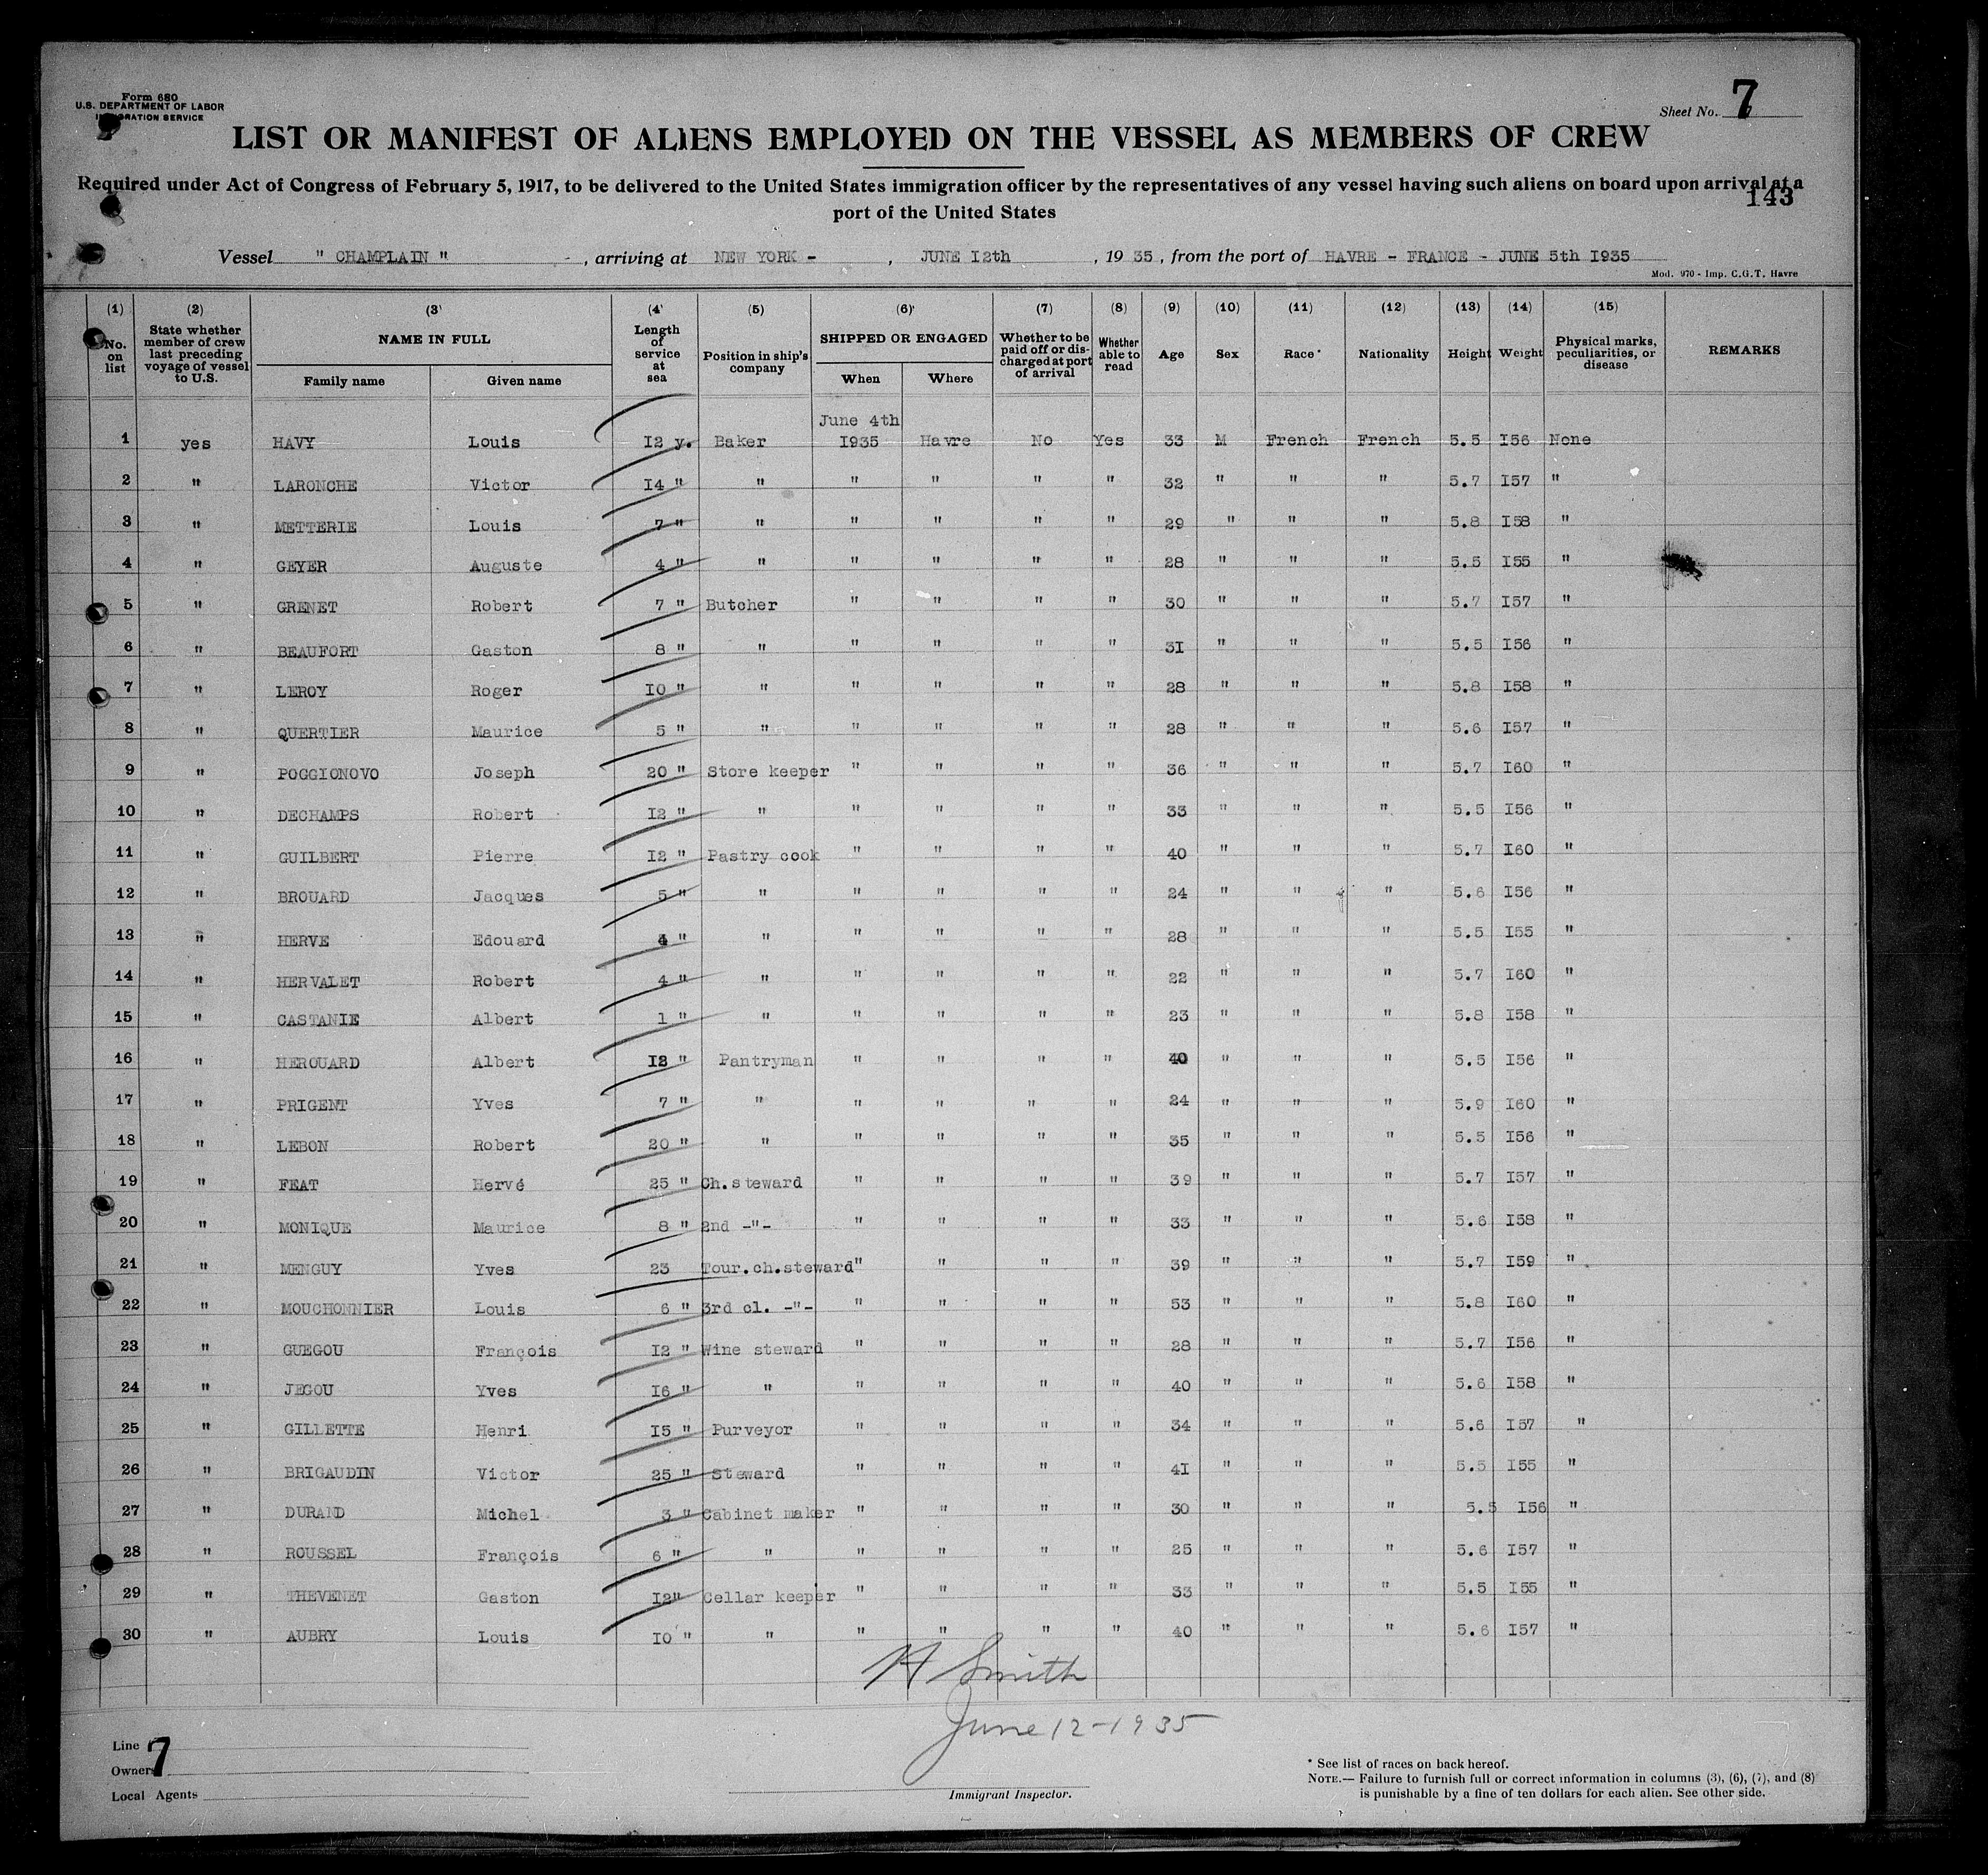 Form 680
U.S. DEPARTMENT OF LABOR
IMMIGRATION SERVICE
Sheet No. 7
LIST OR MANIFEST OF ALIENS EMPLOYED ON THE VESSEL AS MEMBERS OF CREW
Required under Act of Congress of February 5, 1917, to be delivered to the United States immigration officer by the representatives of any vessel having such aliens on board upon arrival at a
port of the United States
143
Vessel " CHAMPLAIN " , arriving at NEW YORK - , JUNE I2th , 19 35 , from the port of HAVRE - FRANCE - JUNE 5th I935
Mod. 970 - Imp. C.G.T. Havre
(1) No. on list
(2) State whether member of crew last preceding voyage of vessel to U.S.
(3) NAME IN FULL Family name Given name
(4) Length of service at sea
(5) Position in ship's company
(6) SHIPPED OR ENGAGED When Where
(7) Whether to be paid off or discharged at port of arrival
(8) Whether able to read
(9) Age
(10) Sex
(11) Race*
(12) Nationality
(13) Height
(14) Weight
(15) Physical marks, peculiarities, or disease
REMARKS
June 4th
1 yes HAVY Louis I2 y. Baker I935 Havre No Yes 33 M French French 5.5 I56 None
2 " LARONCHE Victor I4 " " " " " " 32 " " " 5.7 I57 "
3 " METTERIE Louis 7 " " " " " " 29 " " " 5.8 I58 "
4 " GEYER Auguste 4 " " " " " " 28 " " " 5.5 I55 "
5 " GRENET Robert 7 " Butcher " " " " 30 " " " 5.7 I57 "
6 " BEAUFORT Gaston 8 " " " " " " 3I " " " 5.5 I56 "
7 " LEROY Roger I0 " " " " " " 28 " " " 5.8 I58 "
8 " QUERTIER Maurice 5 " " " " " " 28 " " " 5.6 I57 "
9 " POGGIONOVO Joseph 20 " Store keeper " " " " 36 " " " 5.7 I60 "
10 " DECHAMPS Robert I2 " " " " " " 33 " " " 5.5 I56 "
11 " GUILBERT Pierre I2 " Pastry cook " " " " 40 " " " 5.7 I60 "
12 " BROUARD Jacques 5 " " " " " " 24 " " " 5.6 I56 "
13 " HERVE Edouard 4 " " " " " " 28 " " " 5.5 I55 "
14 " HERVALET Robert 4 " " " " " " 22 " " " 5.7 I60 "
15 " CASTANIE Albert 1 " " " " " " 23 " " " 5.8 I58 "
16 " HEROUARD Albert " Pantryman " " " " 40 " " " 5.5 I56 "
17 " PRIGENT Yves 7 " " " " " " 24 " " " 5.9 I60 "
18 " LEBON Robert 20 " " " " " " 35 " " " 5.5 I56 "
19 " FEAT Hervé 25 " Ch.steward " " " " 39 " " " 5.7 I57 "
20 " MONIQUE Maurice 8 " 2nd -"- " " " " 33 " " " 5.6 I58 "
21 " MENGUY Yves 23 Tour.ch.steward " " " " 39 " " " 5.7 I59 "
22 " MOUCHONNIER Louis 6 " 3rd cl. -"- " " " " 53 " " " 5.8 I60 "
23 " GUEGOU François I2 " Wine steward " " " " 28 " " " 5.7 I56 "
24 " JEGOU Yves I6 " " " " " " 40 " " " 5.6 I58 "
25 " GILLETTE Henri I5 " Purveyor " " " " 34 " " " 5.6 I57 "
26 " BRIGAUDIN Victor 25 " Steward " " " " 4I " " " 5.5 I55 "
27 " DURAND Michel 3 " Cabinet maker " " " " 30 " " " 5.5 I56 "
28 " ROUSSEL François 6 " " " " " " 25 " " " 5.6 I57 "
29 " THEVENET Gaston I2" Cellar keeper " " " " 33 " " " 5.5 I55 "
30 " AUBRY Louis I0 " " " " " " 40 " " " 5.6 I57 "
H Smith
June 12-1935
Line
7
Owners
Local Agents
Immigrant Inspector.
* See list of races on back hereof.
NOTE.— Failure to furnish full or correct information in columns (3), (6), (7), and (8)
is punishable by a fine of ten dollars for each alien. See other side.